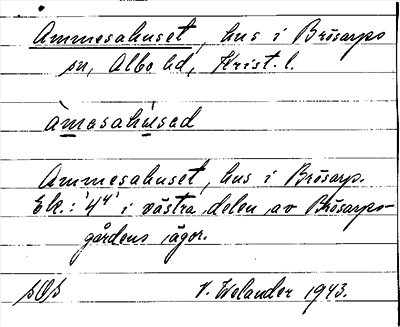 Ammesahuset, hus i Brösarps
sn, Albo hd, Krist. l.
àmasahúsad
Ammesahuset, hus i Brösarp.
Ek.: '4⁴' i västra delen av Brösarps-
gårdens ägor.
V. Welander 1943.